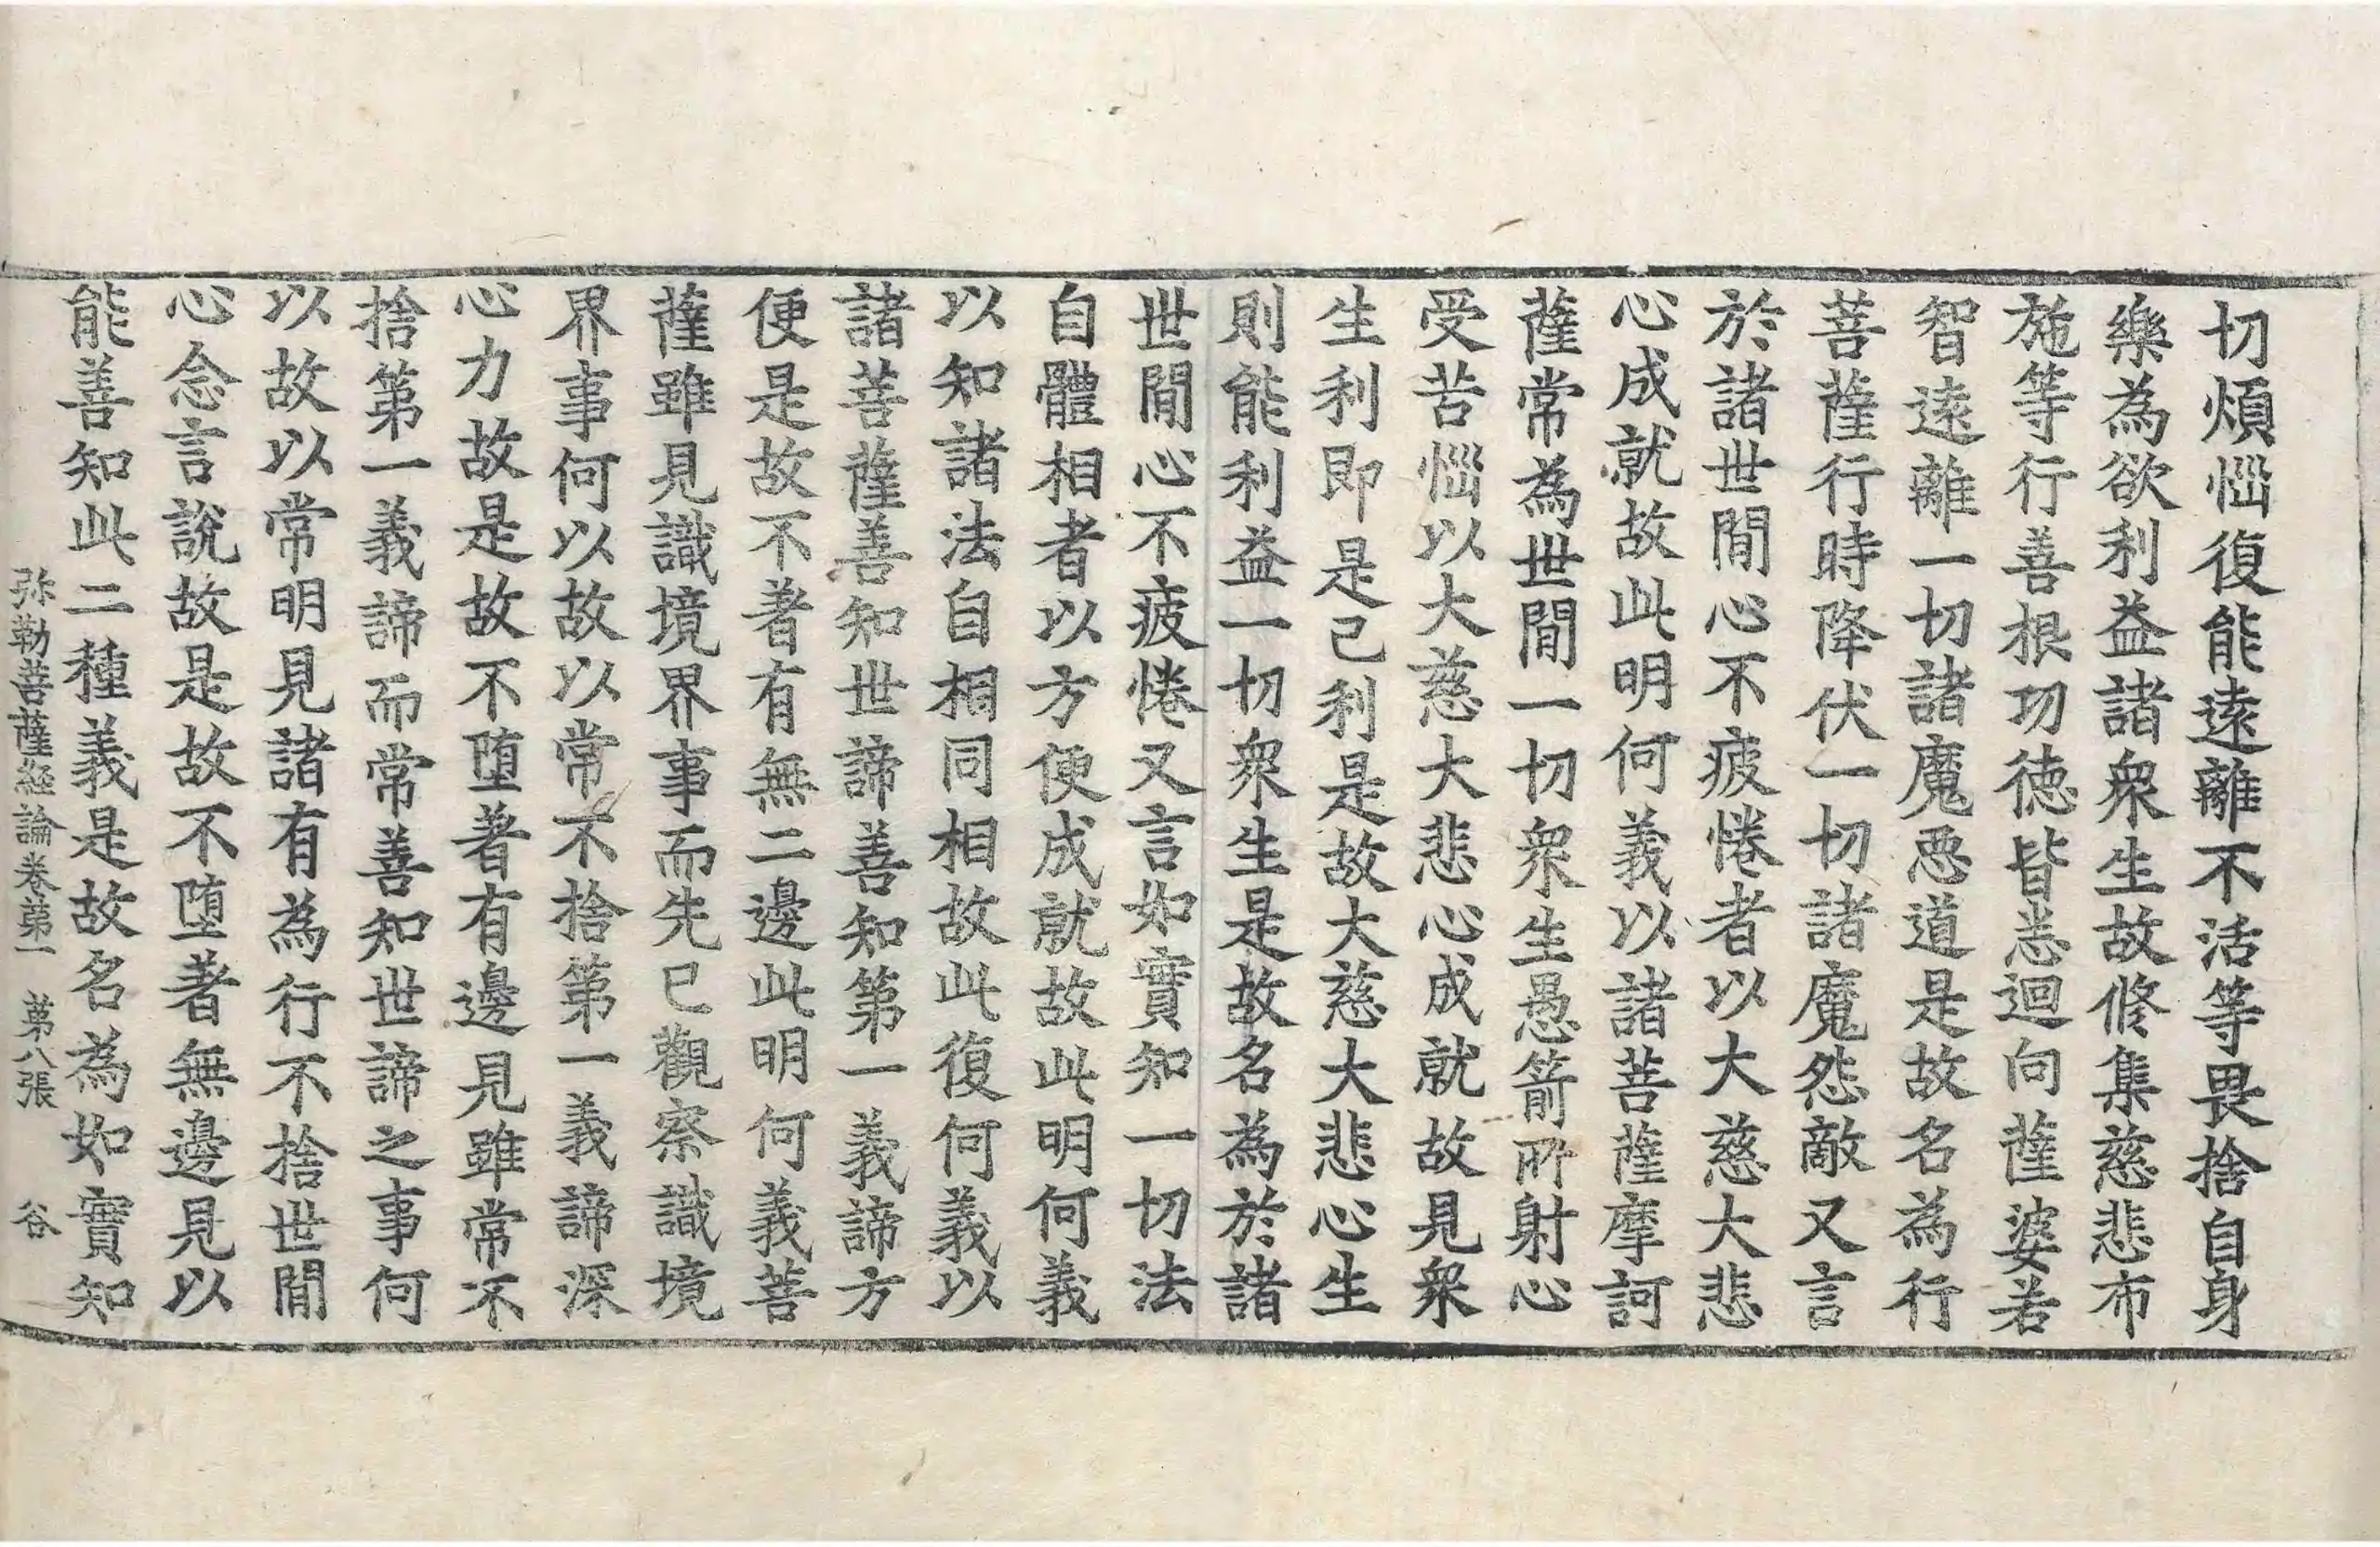 切煩惱復能遠離不活等畏捨自身
樂為欲利益諸衆生故修集慈悲布
施等行善根功徳皆悉迴向薩婆若
智遠離一切諸魔惡道是故名為行
菩薩行時降伏一切諸魔怨敵又言
於諸世間心不疲惓者以大慈大悲
心成就故此明何義以諸菩薩摩訶
薩常為世間一切衆生愚箭所射心
受苦惱以大慈大悲心成就故見衆
生利即是己利是故大慈大悲心生
則能利益一切衆生是故名為於諸
世間心不疲惓又言如實知一切法
自體相者以方便成就故此明何義
以知諸法自相同相故此復何義以
諸菩薩善知世諦善知第一義諦方
便是故不著有無二邊此明何義菩
薩雖見識境界事而先已觀察識境
界事何以故以常不捨第一義諦深
心力故是故不堕著有邊見雖常不
捨第一義諦而常善知世諦之事何
以故以常明見諸有為行不捨世間
心念言說故是故不堕著無邊見以
能善知此二種義是故名為如實知
弥勒菩薩經論卷第一　第八張　谷